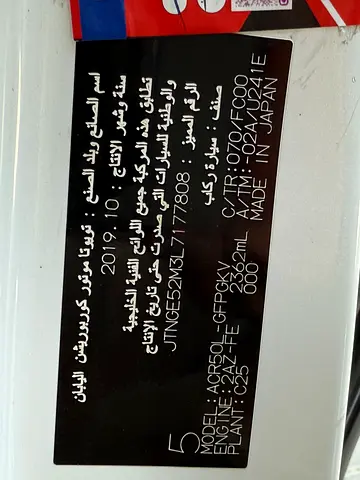 اسم الصانع وبلد الصنع : تويوتا موتور كوربوريشن اليابان
سنة وشهر الانتاج : 2019.10
تطابق هذه المركبة جميع اللوائح الفنية الخليجية
والوطنية للسيارات التي صدرت حتى تاريخ الانتاج
الرقم المميز : JTNGE52M3L7177808
صنف : سيارة ركاب
5
MODEL:ACR50L-GFPGKV C/TR:070/FC00
ENGINE:2AZ-FE 2362mL A/TM:-02A/U241E
PLANT:C25 000 MADE IN JAPAN